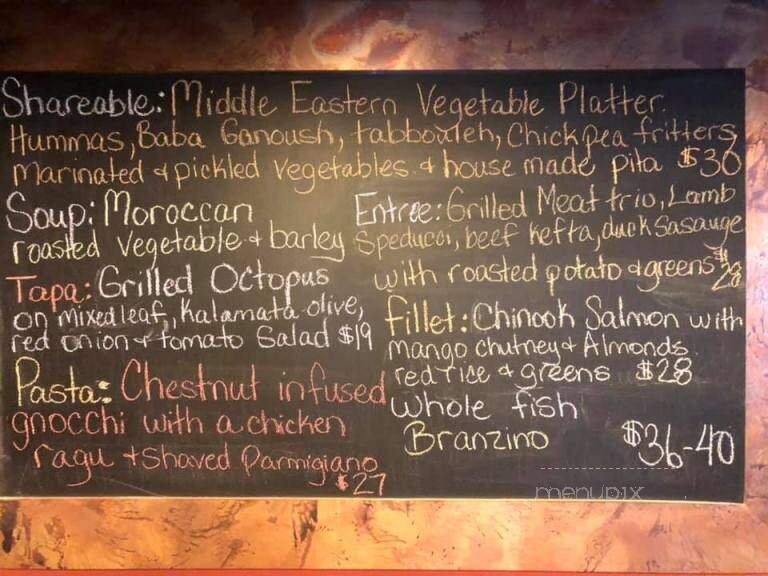 Shareable: Middle Eastern Vegetable Platter.
Hummas, Baba Ganoush, tabbouleh, Chickpea fritters
Marinated & pickled vegetables. & house made pita $30
Soup: Moroccan
roasted vegetable & barley
Tapa: Grilled Octopus
on mixed leaf, Kalamata olive,
red onion & tomato Salad $19
Pasta: Chestnut infused
gnocchi with a chicken
ragu & shaved Parmigiano
$27
Entree: Grilled Meat trio, Lamb
Speducci, beef Kefta, duck Sasauge
with roasted potato & greens $28
Fillet: Chinook Salmon with
mango chutney & Almonds
red rice & greens $28
Whole fish
Branzino $36-40
menupix